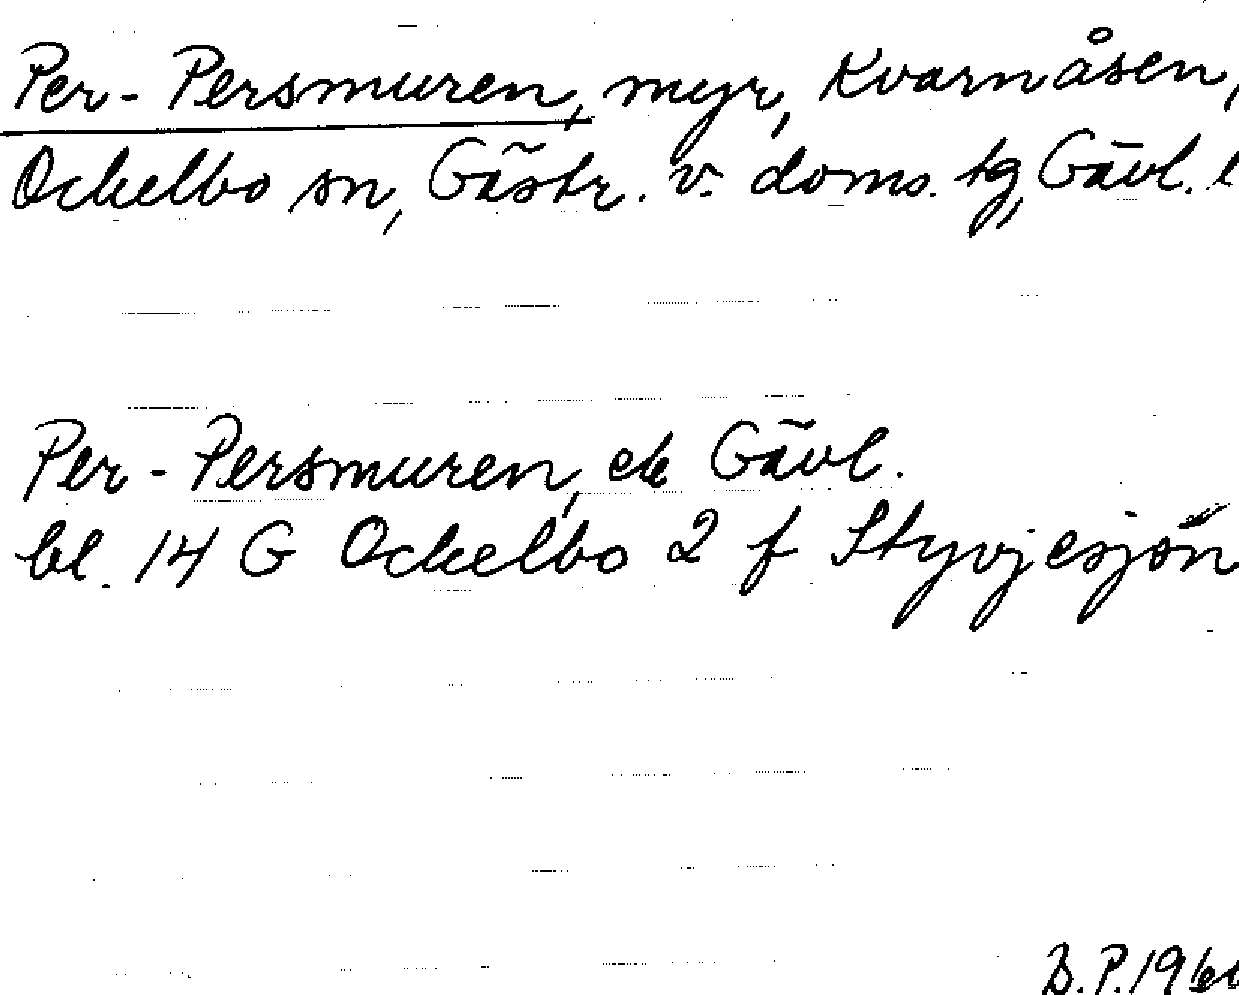 Per-Persmuren, myr, Kvarnåsen,
Ockelbo sn, Gästr. v. doms. tg, Gävl. l
Per-Persmuren, ek Gävl.
bl. 14 G Ockelbo 2 f Styvjesjön
B.P.